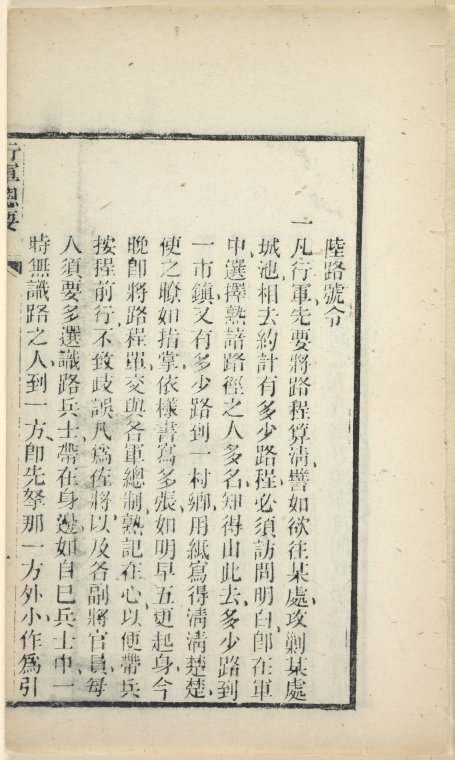 陸路號令
一凡行軍先要將路程算清譬如欲往某處攻剿某處
城池相去約計有多少路程必須訪問明白卽在軍
中選擇熟諳路徑之人多名知得由此去多少路到
一市鎮又有多少路到一村鄉用紙寫得清清楚楚
使之瞭如指掌依樣書寫多張如明早五更起身今
晚卽將路程單交與各軍總制熟記在心以便帶兵
按程前行不致歧誤凡爲佐將以及各副將官員每
人須要多選識路兵士帶在身邊如自己兵士中一
時無識路之人到一方卽先拏那一方外小作爲引
行軍總要